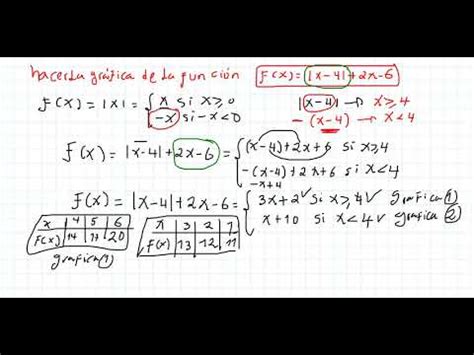 hacer la gráfica de la función f(x) = |x-4| + 2x-6
f(x) = |x| = { x si x ≥ 0
-x si -x < 0
|x-4| → x ≥ 4
-(x-4) → x < 4
f(x) = |x-4| + 2x-6 = { (x-4) + 2x + 6 si x ≥ 4
-(x-4) + 2x + 6 si x < 4
-x+4
f(x) = |x-4| + 2x-6 = { 3x+2 ✓ si x ≥ 4 ✓ grafica ①
x+10 si x < 4 ✓ grafica ②
x 4 5 6
f(x) 14 17 20
x 3 2 1
f(x) 13 12 11
grafica ①